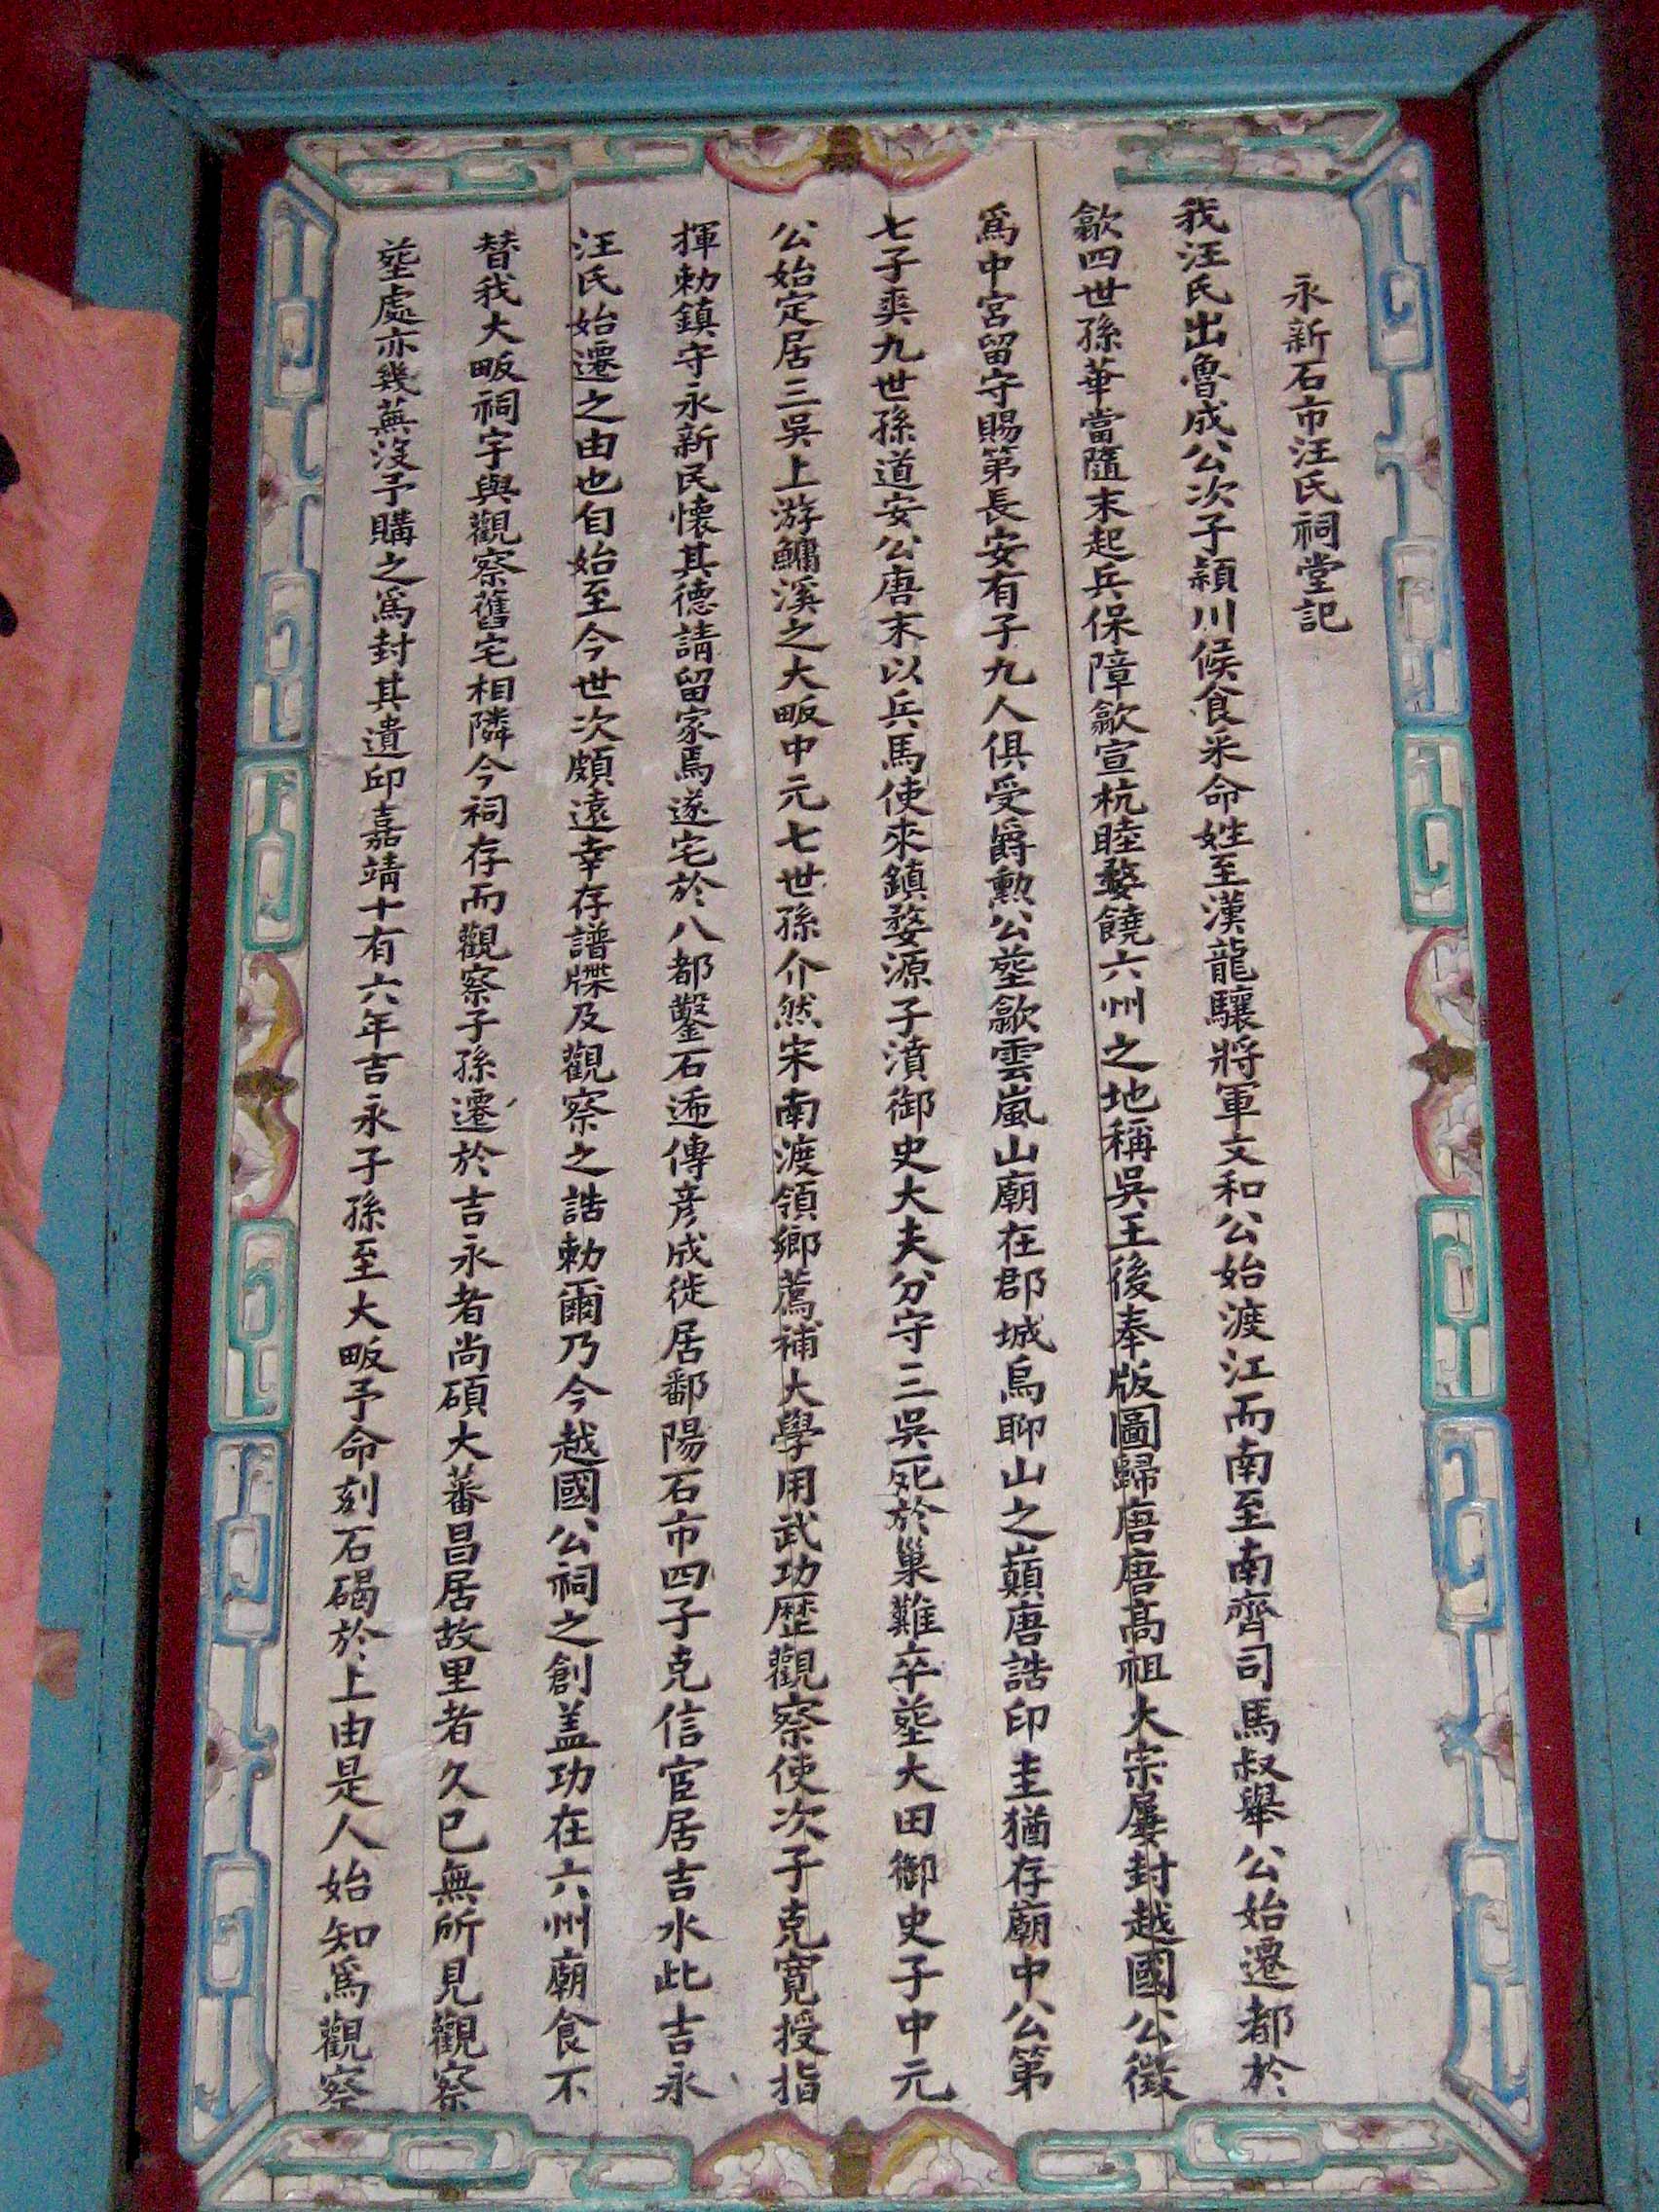 永新石市汪氏祠堂記
我汪氏出魯成公次子潁川候食采命姓至漢龍驤將軍文和公始渡江而南至南齊司馬叔舉公始遷都於
歙四世孫華當隨末起兵保障歙宣杭睦婺饒六州之地稱吳王後奉版圖歸唐唐高祖大宗屢封越國公徵
爲中宮留守賜第長安有子九人俱受爵勲公塟歙雲嵐山廟在郡城烏聊山之巔唐誥印圭猶存廟中公第
七子爽九世孫道安公唐末以兵馬使來鎮婺源子濆御史大夫分守三吳死於巢難卒塟大田御史子中元
公始定居三吳上游鱅溪之大畈中元七世孫介然宋南渡領鄉薦補大學用武功歷觀察使次子克寬授指
揮勅鎮守永新民懷其德請留家焉遂宅於八都鑿石逓傳彦成徙居鄱陽石市四子克信宦居吉水此吉永
汪氏始遷之由也自始至今世次頗遠幸存譜牒及觀察之誥勅爾乃今越國公祠之創盖功在六州廟食不
替我大畈祠宇與觀察舊宅相隣今祠存而觀察子孫遷於吉永者尚碩大蕃昌居故里者久已無所見觀察
塟處亦幾蕪沒予購之爲封其遺邱嘉靖十有六年吉永子孫至大畈予命刻石碣於上由是人始知爲觀察